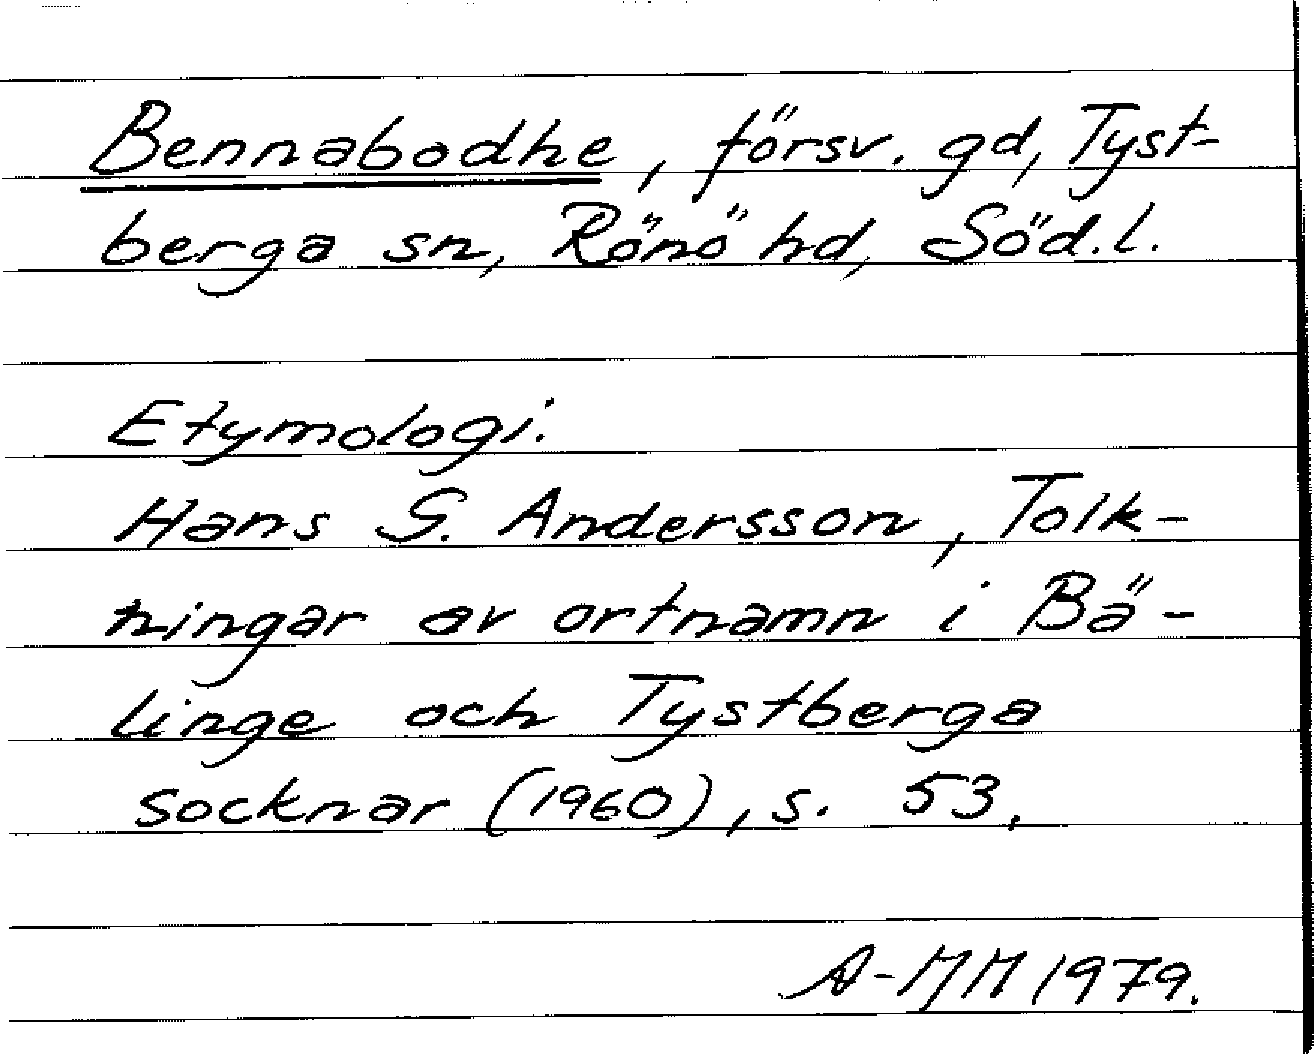 Bennabodhe, försv. gd, Tyst-
berga sn, Rönö hd, Söd.l.
Etymologi.
Hans G. Andersson, Tolk-
ningar av ortnamn i Bä-
linge och Tystberga
socknar (1960), s. 53.
A-MM 1979.